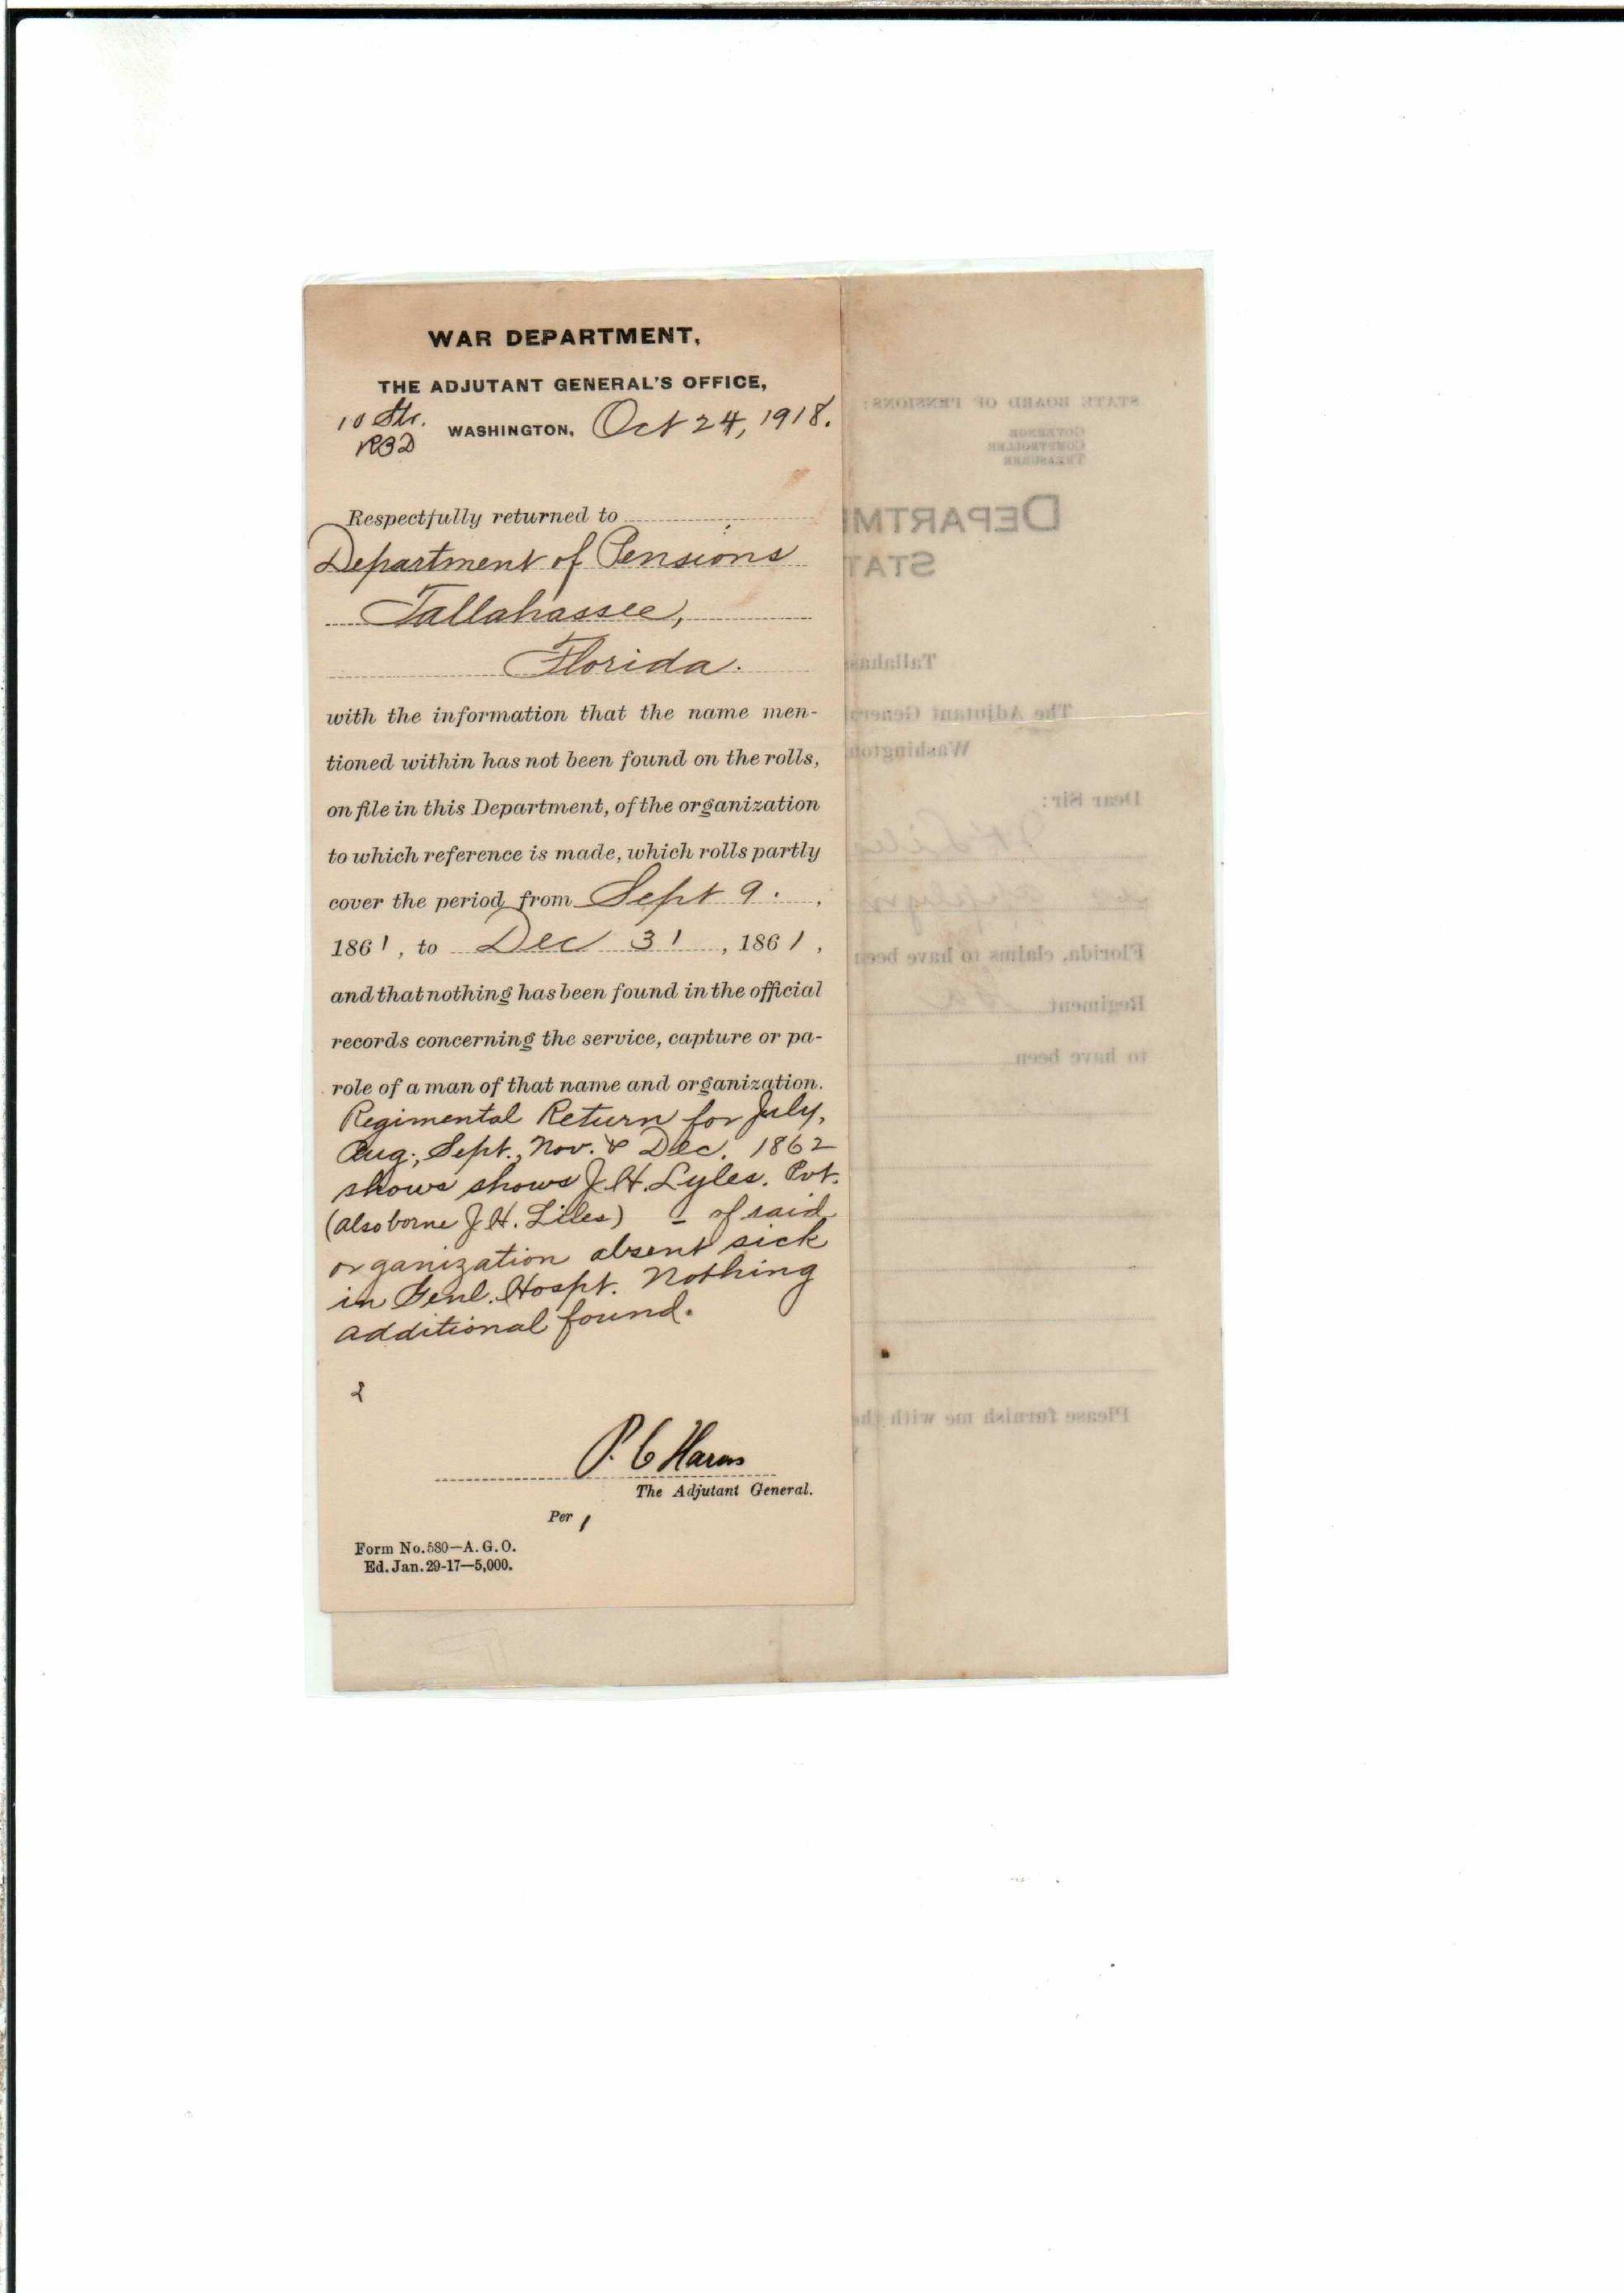 WAR DEPARTMENT,
THE ADJUTANT GENERAL'S OFFICE,
10 Str.
RBD
WASHINGTON, Oct 24, 1918.
Respectfully returned to
Department of Pensions
Tallahassee,
Florida.
with the information that the name men-
tioned within has not been found on the rolls,
on file in this Department, of the organization
to which reference is made, which rolls partly
cover the period from Sept 9. ,
1861, to Dec 31, 1861,
and that nothing has been found in the official
records concerning the service, capture or pa-
role of a man of that name and organization.
Regimental Return for July,
Aug., Sept., Nov. & Dec. 1862
shows shows J. H. Lyles. Pvt.
(also borne J. H. Liles) - of said
organization absent sick
in Genl. Hospt. Nothing
additional found.
2
P. C. Harris
The Adjutant General.
Per
Form No. 580—A. G. O.
Ed. Jan. 29-17—5,000.
STATE BOARD OF PENSIONS:
GOVERNOR
COMPTROLLER
TREASURER
DEPARTM
STAT
Tallahas
The Adjutant Genera
Washington
Dear Sir:
Florida, claims to have been
Regiment Ga
to have been
Please furnish me with the